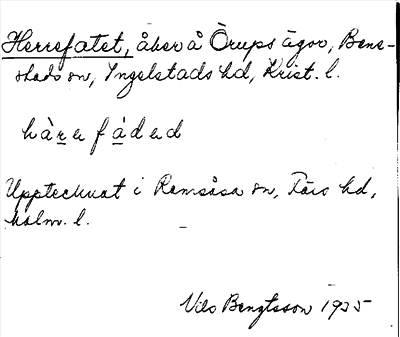 Herrefatet, åker å Örups ägor, Bene-
stads sn, Ingelstads hd, Krist. l.
hàrefádad
Upptecknat i Ramsåsa sn, Färs hd,
Malm. l.
Nils Bengtsson 1935